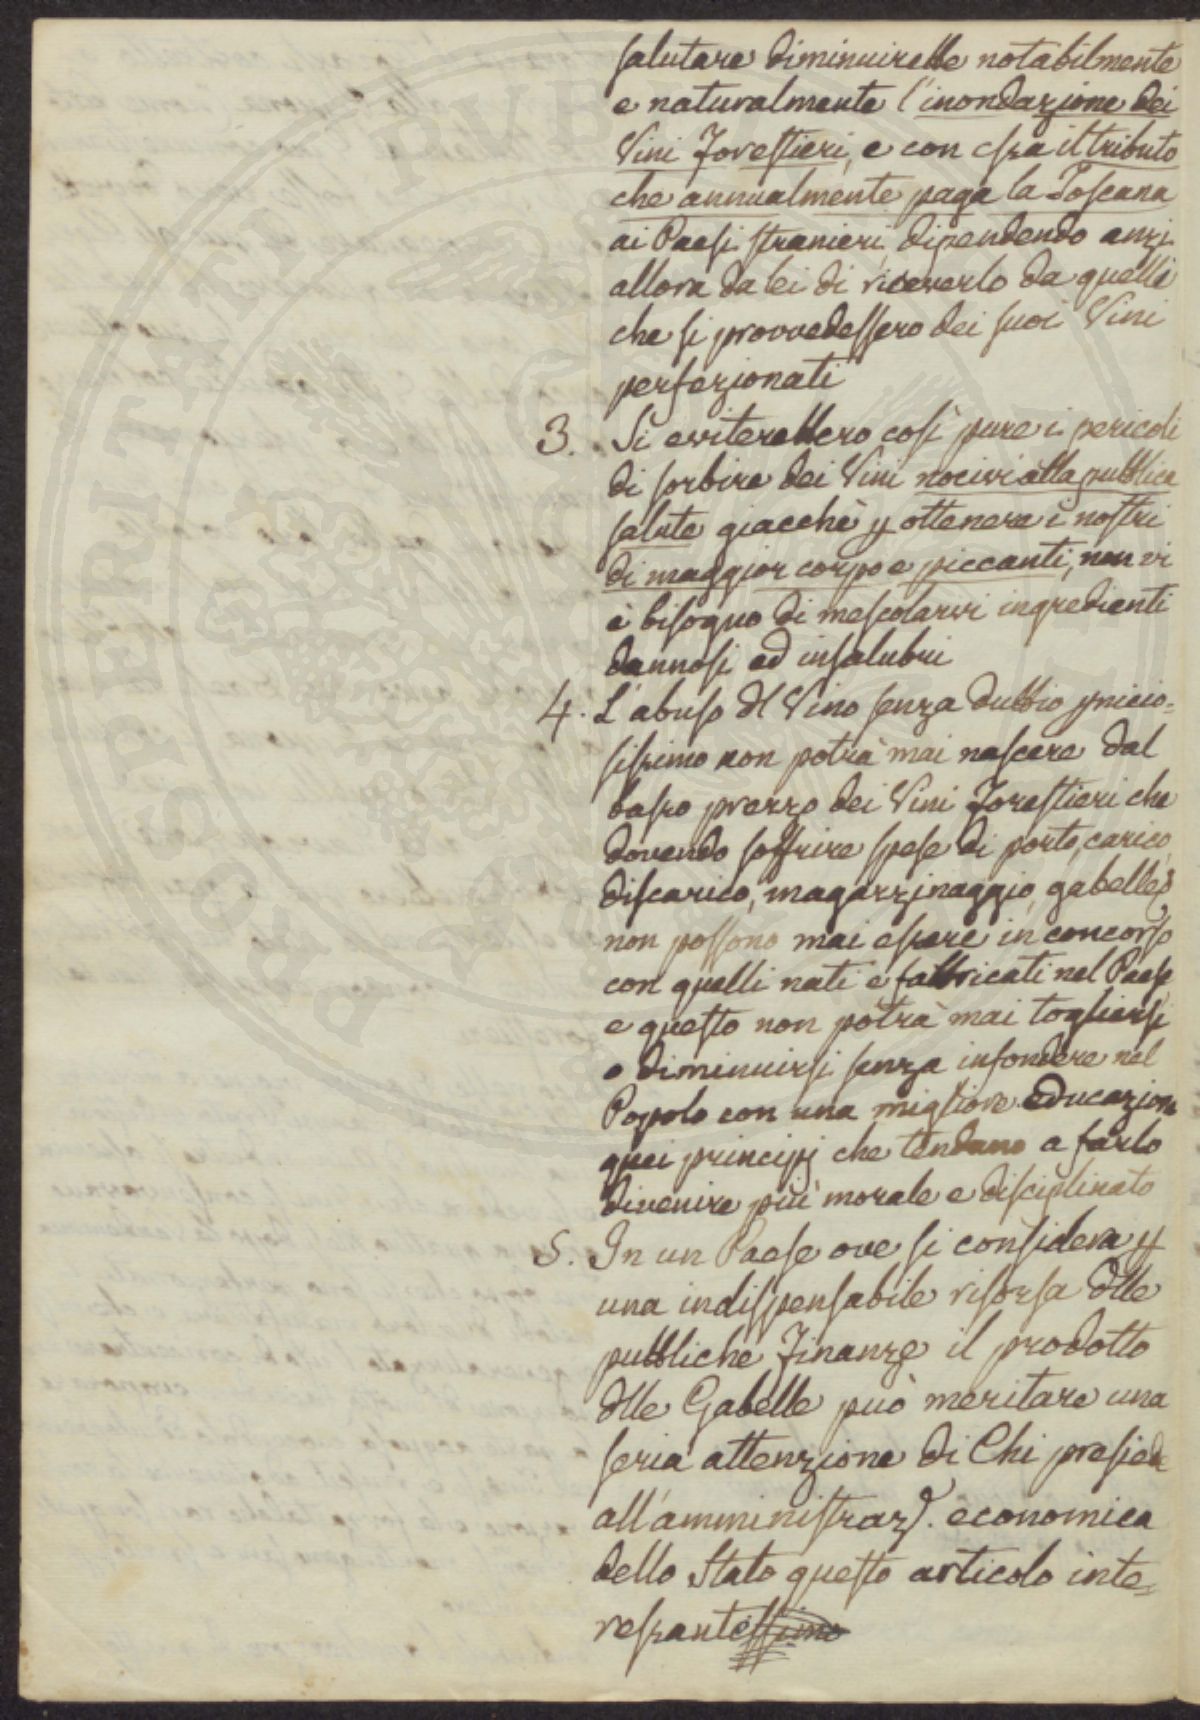 salutare diminuirebbe notabilmente
e naturalmente l'inondazione dei
Vini Forestieri, e con essa il tributo
che annualmente paga la Toscana
ai Paesi stranieri, dipendendo anzi
allora da lei di riceverlo da quelli
che si provvedessero dei suoi Vini
perfezionati
3. Si eviterebbero così pure i pericoli
di sorbire dei Vini nocivi alla pubblica
salute giacchè p ottenere i nostri
di maggior corpo e piccanti, non vi
è bisogno di mescolarvi ingredienti
dannosi ed insalubri
4. L'abuso dl Vino senza dubbio pnicio=
sissimo non potrà mai nascere dal
basso prezzo dei Vini Forestieri che
dovendo soffrire spese di porto, carico,
discarico, magazzinaggio, gabelle
non possono mai essere in concorso
con quelli nati e fabbricati nel Paese
e questo non potrà mai togliersi
o diminuirsi senza infondere nel
Popolo con una migliore educazione
quei principj che tendano a farlo
divenire più morale e disciplinato
5. In un Paese ove si considera p
una indispensabile risorsa dlle
pubbliche Finanze il prodotto
dlle Gabelle può meritare una
seria attenzione di Chi presiede
all'amministraz. economica
dello Stato questo articolo inte=
ressantissimo
PROSPERITATI PVB